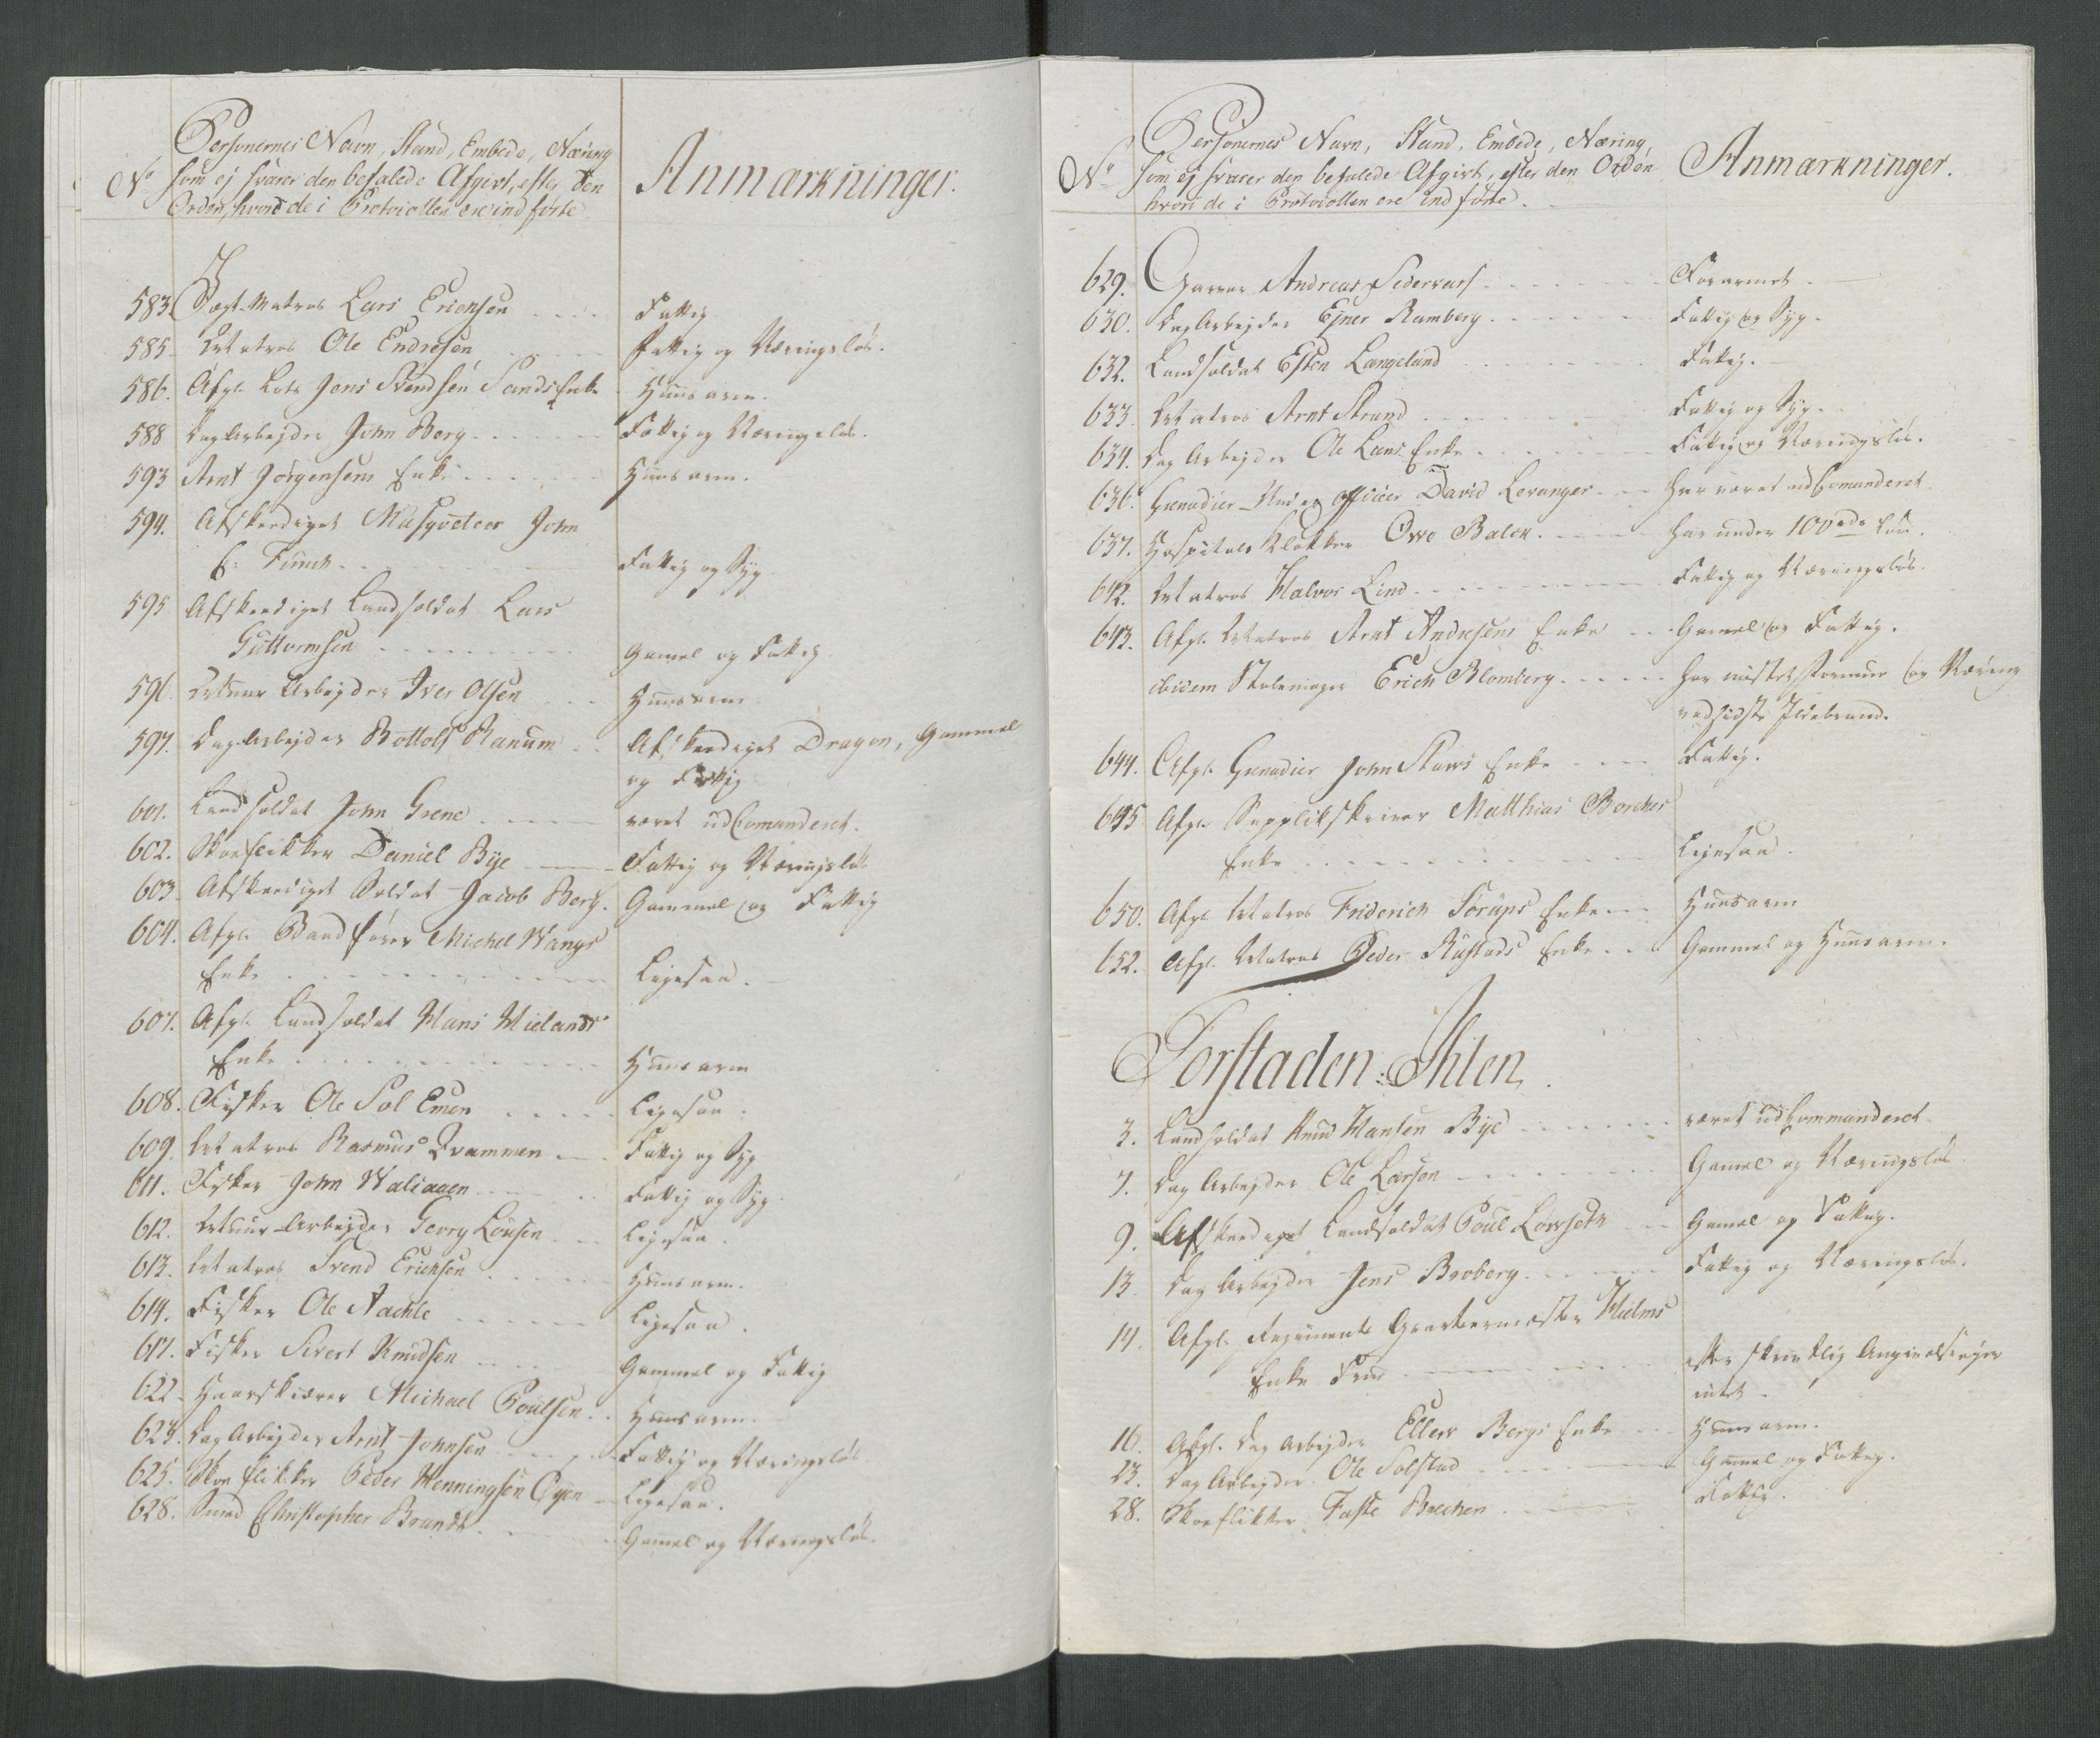 No
Personernes Navn, Stand, Embede, Næring
som ej svarer den befalede Afgivt, efter den
Orden, hvori de i Protocollen ere indførte
Anmærkninger.
583. Jagt-Matros Lars Erichsen .... Fattig
585. Matros Ole Endresen ..... Fattig og Næringsløs.
586. Afgl. Lods Jens Svendsen Sands Enke Huusarm.
588 Dag-Arbejder John Berg ..... Fattig og Næringsløs.
593 Arnt Jørgensens Enke ..... Huusarm.
594. Afskeediget Musqveteer John
C: Funch ..... Fattig og Syg
595 Afskeediget Landsoldat Lars
Guttormsen ..... Gamel og Fattig
596. Muur Arbejder Iver Olsen ... Huusarm
597. Dag-Arbejder Bottolf Ranum .. Afskeediget Dragon, Gammel
og Fattig
601. Landsoldat John Grene .... været udComanderet.
602. Skoeflikker Daniel Bye — Fattig og Næringsløs
603 Afskeediget Soldat Jacob Berg. Gammel og Fattig
604. Afgl. Vandfører Michel Wangs
Enke ..... Ligesaa.
607. Afgl. Landsoldat Hans Mielands
Enke ..... Huusarm
608. Fisker Ole Sol Emen ..... Ligesaa.
609. Matros Rasmus Qvammen ... Fattig og Syg
611. Fisker John Waliaaen ..... Fattig og Syg.
612. Muur-Arbejder Georg Lousen ... Ligesaa.
613. Matros Svend Erichsen ..... Huusarm.
614. Fisker Ole Aachle ..... Ligesaa.
617. Fisker Sivert Knudsen .... Gammel og Fattig
622 Haarskiærer Michael Poulsen .. Huusarm.
623. Dag Arbejder Arnt Johnsen .... Fattig og Næringsløs
625. Skoe flikker Peder Henningsen Øyen — Ligesaa.
628. Smed Christopher Brandt ..... Gamel og Næringsløs.
No
Personernes Navn, Stand, Embede, Næring,
som ej svarer den befalede Afgivt, efter den Orden
hvori de i Protocollen ere indførte.
Anmærkninger.
629. Garver Andreas ..... Forarmet.
630. Dag Arbejder Ejner Ramberg ..... Fattig og Syg.
632. Landsoldat Esten Langeland ..... Fattig.
633. Matros Arnt Strand ..... Fattig og Syg.
634. Dag Arbejder Ole Lans Enke ..... Fattig og Næringsløs.
636. Grenadier-Under Officier David Levanger ... har været udComanderet.
637. Hospitals Klokker Owe Balch ..... har under 100 rdr Løn.
642. Matros Halvor Lind ..... Fattig og Næringsløs.
643. Afgl. Matros Arnt Andresens Enke ... Gamel og Fattig.
ibidem Stolemager Erich Blomberg ..... har mistet Formue og Næring
ved sidste Ildebrand.
644. Afgl. Grenadier John Staws Enke ..... Fattig.
645 Afgl. Supplikskriver Matthias Borchs
Enke ..... Ligesaa.
650. Afgl. Matros Friderich Sörups Enke ... Huusarm
652. Afgl. Matros Peder Rustads Enke .. Gammel og Huusarm.
Forstaden: Ihlen.
3. Landsoldat Knud Hansen Bye ..... været udCommanderet
7. Dag Arbejder Ole Larsen ..... Gamel og Næringsløs
9. Afskeediget Landsoldat Poul Lowseth ... Gamel og Fattig.
13. Dag Arbejder Jens Broberg ..... Fattig og Næringsløs.
14. Afgl. Regiments Qvarteermester Hielms
Enke Frue ..... efter skrivtlig Angivelse ejer
intet.
16. Afgl. Dag Arbejder Ellew Bergs Enke ... Huusarm.
23. Dag Arbejder Ole Solstad ..... Gamel og Fattig.
28. Skoeflikker Faste Brechen ..... Fattig.